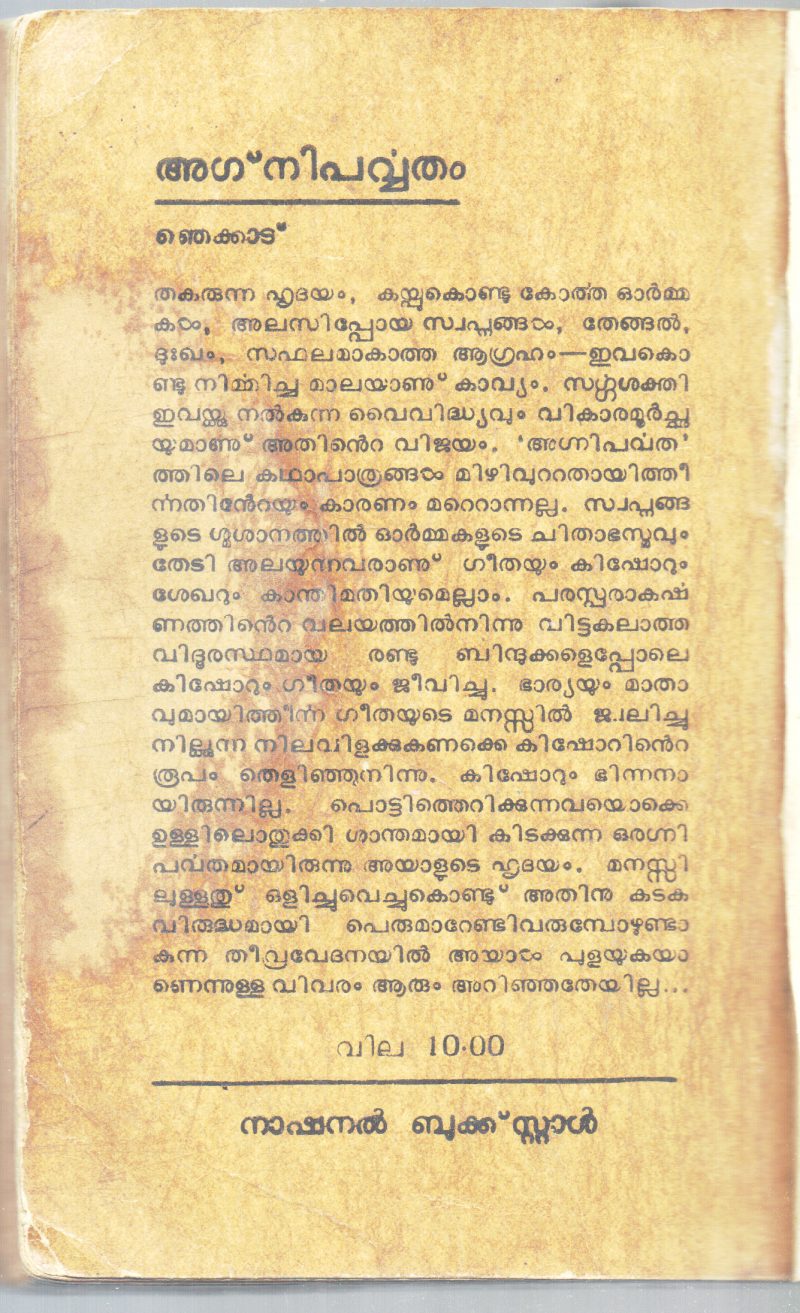 അഗ്നിപൎവ്വതം
ഞെക്കാട്
തകരുന്ന ഹൃദയം, കയ്പുകൊണ്ടു കോൎത്ത ഓർമ്മ
കൾ, അലസിപ്പോയ സ്വപ്നങ്ങൾ, തേങ്ങൽ,
ദുഃഖം, സഫലമാകാത്ത ആഗ്രഹം—ഇവകൊ
ണ്ടു നിൎമ്മിച്ച മാലയാണു് കാവ്യം. സൎഗ്ഗശക്തി
ഇവയ്ക്കു നൽകുന്ന വൈവിദ്ധ്യവും വികാരമൂർച്ഛ
യുമാണു് അതിൻെറ വിജയം. 'അഗ്നിപൎവത'
ത്തിലെ കഥാപാത്രങ്ങൾ മിഴിവുററതായിത്തീ
ൎന്നതിൻേറയും കാരണം മറെറാന്നല്ല. സ്വപ്നങ്ങ
ളുടെ ശ്മശാനത്തിൽ ഓർമ്മകളുടെ ചിതാഭസ്മവും
തേടി അലയുന്നവരാണു് ഗീതയും കിഷോറും
ശേഖറും കാന്തിമതിയുമെല്ലാം. പരസ്പരാകൎഷ
ണത്തിൻെറ വലയത്തിൽനിന്നു വിട്ടകലാത്ത
വിദൂരസ്ഥമായ രണ്ടു ബിന്ദുക്കളെപ്പോലെ
കിഷോറും ഗീതയും ജീവിച്ചു. ഭാര്യയും മാതാ
വുമായിത്തീൎന്ന ഗീതയുടെ മനസ്സിൽ ജ്വലിച്ചു
നില്ക്കുന്ന നിലവിളക്കുകണക്കെ കിഷോറിൻെറ
രൂപം തെളിഞ്ഞുനിന്നു. കിഷോറും ഭിന്നനാ
യിരുന്നില്ല. പൊട്ടിത്തെറിക്കുന്നവയൊക്കെ
ഉള്ളിലൊതുക്കി ശാന്തമായി കിടക്കുന്ന ഒരഗ്നി
പൎവതമായിരുന്നു അയാളുടെ ഹൃദയം. മനസ്സി
ലുള്ളതു് ഒളിച്ചുവെച്ചുകൊണ്ടു് അതിനു കടക
വിരുദ്ധമായി പെരുമാറേണ്ടിവരുമ്പോഴുണ്ടാ
കുന്ന തീവ്രവേദനയിൽ അയാൾ പുളയുകയാ
ണെന്നുള്ള വിവരം ആരും അറിഞ്ഞതേയില്ല...
വില 10·00
നാഷനൽ ബുക്ക്സ്റ്റാൾ